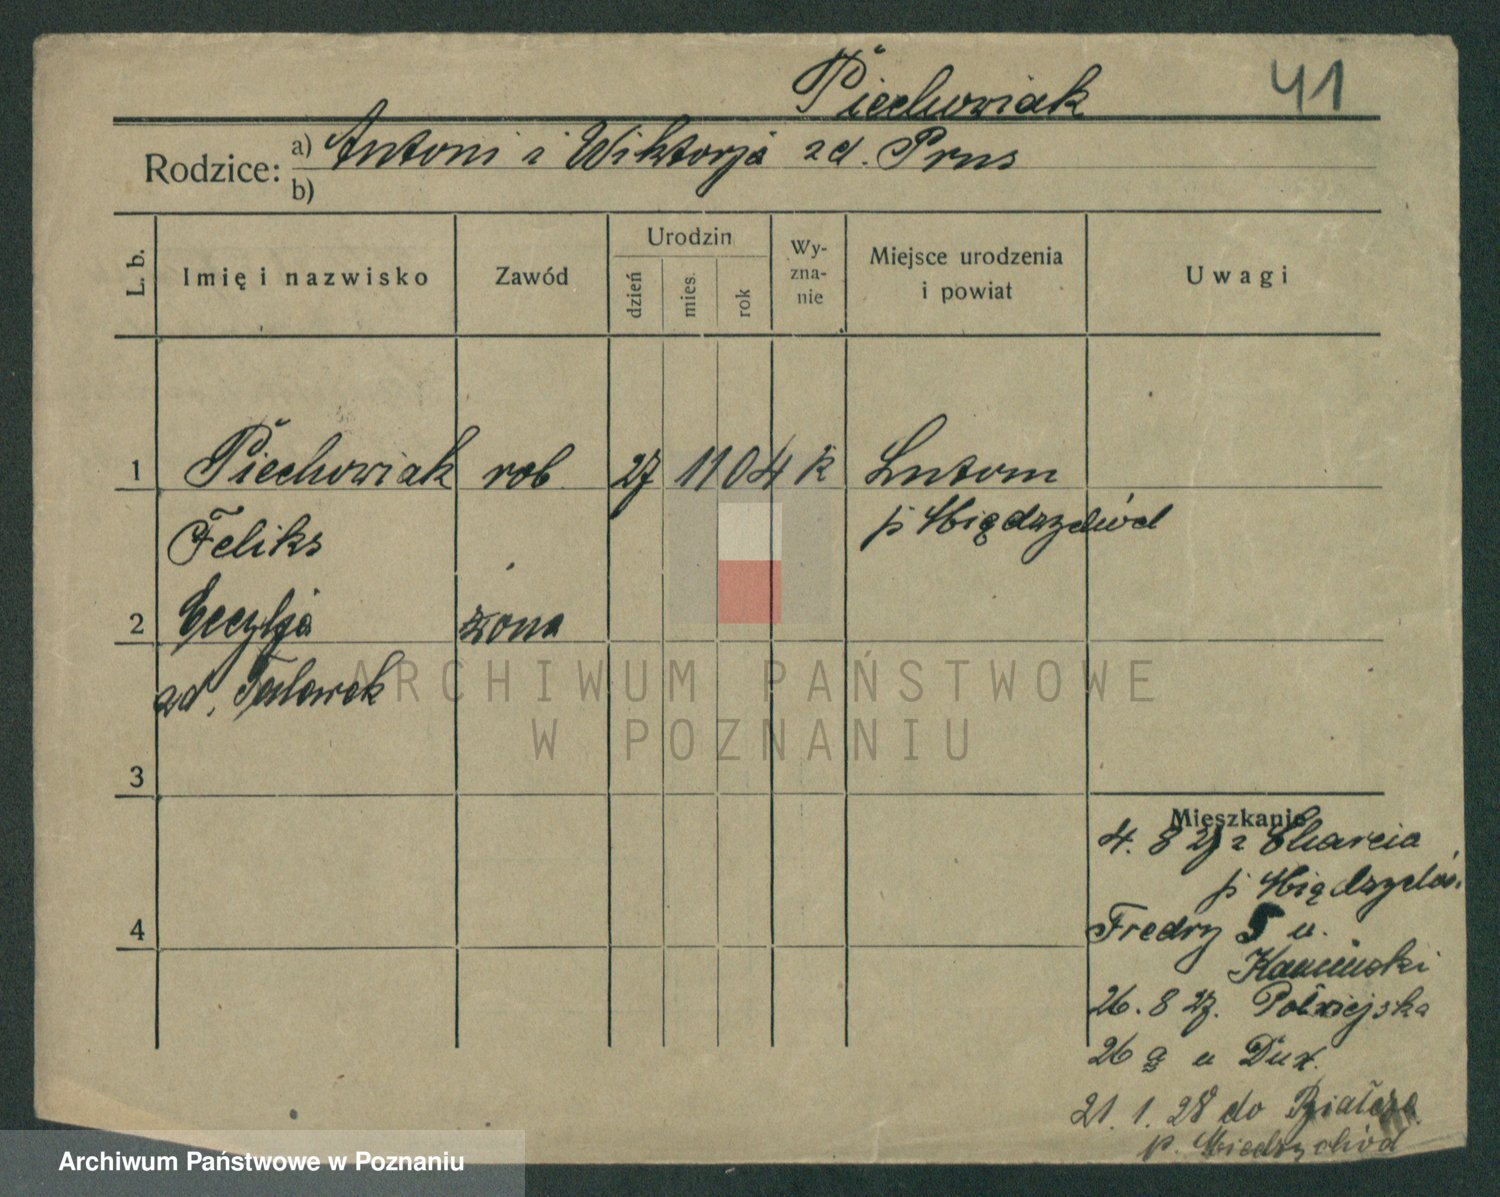 Piechowiak 41
Rodzice: a) Antoni i Wiktorja zd. Prus
b)
L. b. Imię i nazwisko Zawód Urodzin dzień mies. rok Wyznanie Miejsce urodzenia i powiat Uwagi
1 Piechowiak rob 27 11 04 k Lutom
Feliks p Międzychód
2 Cecylja żona
zd.
ARCHIWUM PAŃSTWOWE
W POZNANIU
3
Mieszkanie
4. 8 27 z Charcic
p Międzychó.
4 Fredry 5 u.
Kamiński
26. 8 27. Półwiejska
26 u Dux.
21. 1. 28 do
p. Międzychód
Archiwum Państwowe w Poznaniu